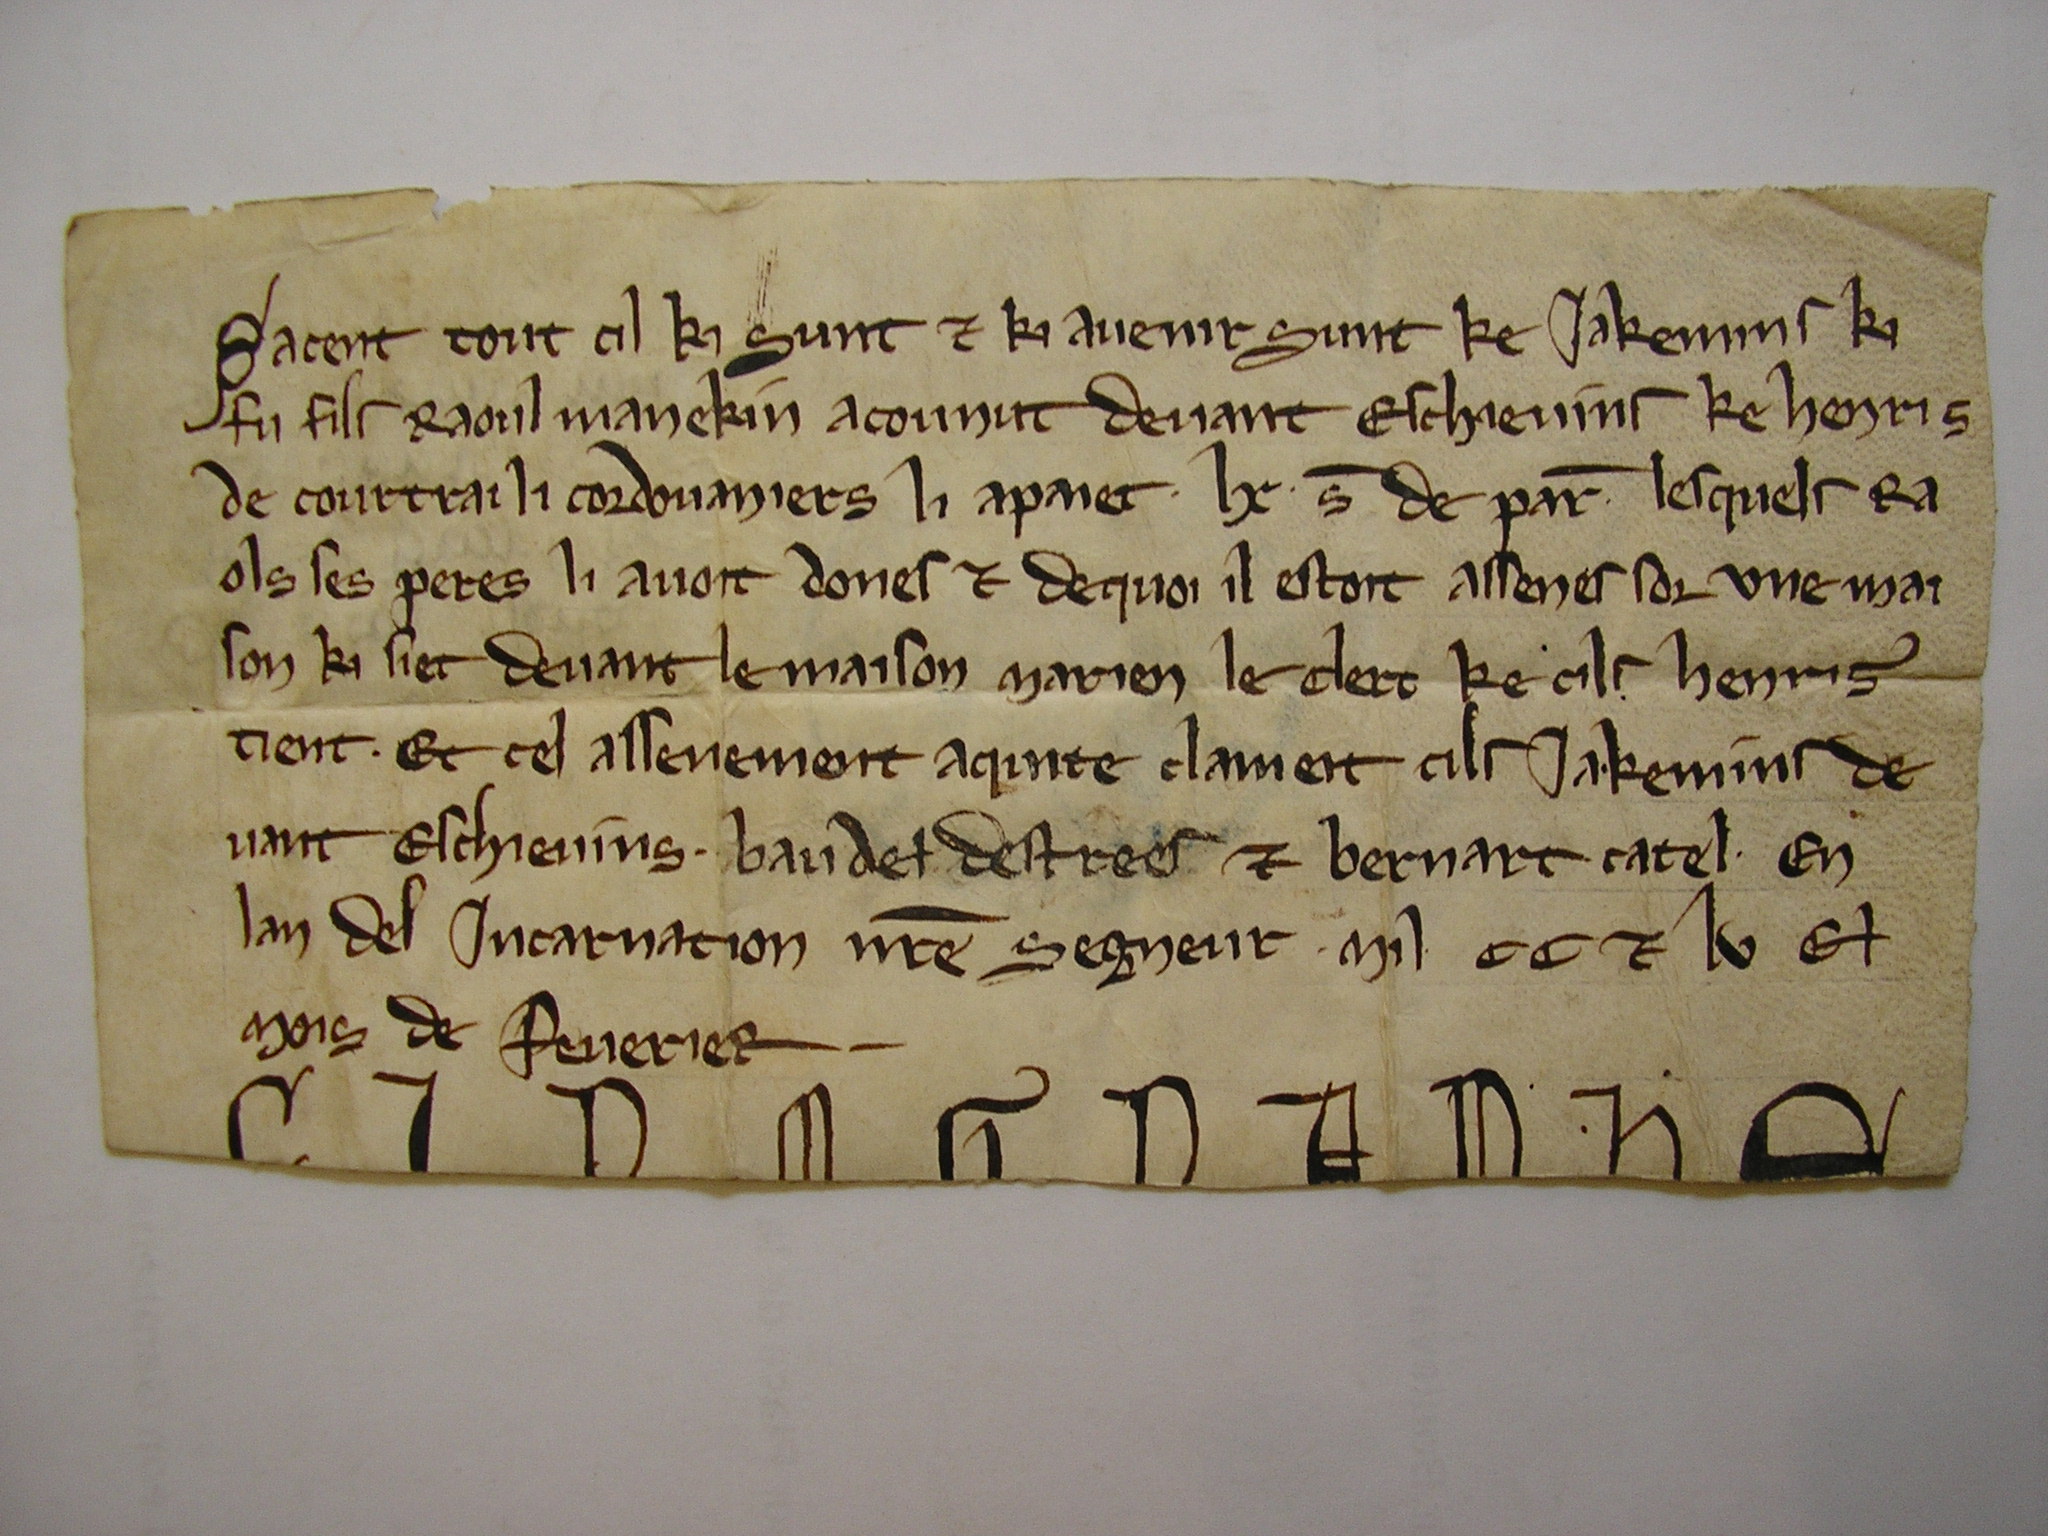 Sacent tout cil ki sunt ⁊ ki auenir sunt ke Jakemins ki
fu fils Raoul manekin a counut deuant Eschieuins ke henris
de courtrai li cordouaniers li a paiet · lx · s̄ de par̄ · lesquels Ra
ols ses peres li auoit dones ⁊ de quoi il estoit assenes sor vne mai
son ki siet deuant le maison marien le clerc ke cils henris
tient · Et cel assenement a quite clameit cils Jakemins de
uant Eschieuins · baudet destrees ⁊ bernart catel · En
lan del Incarnation nr̄e segneur · mil · CC ⁊ lv El
mois de Feuerier